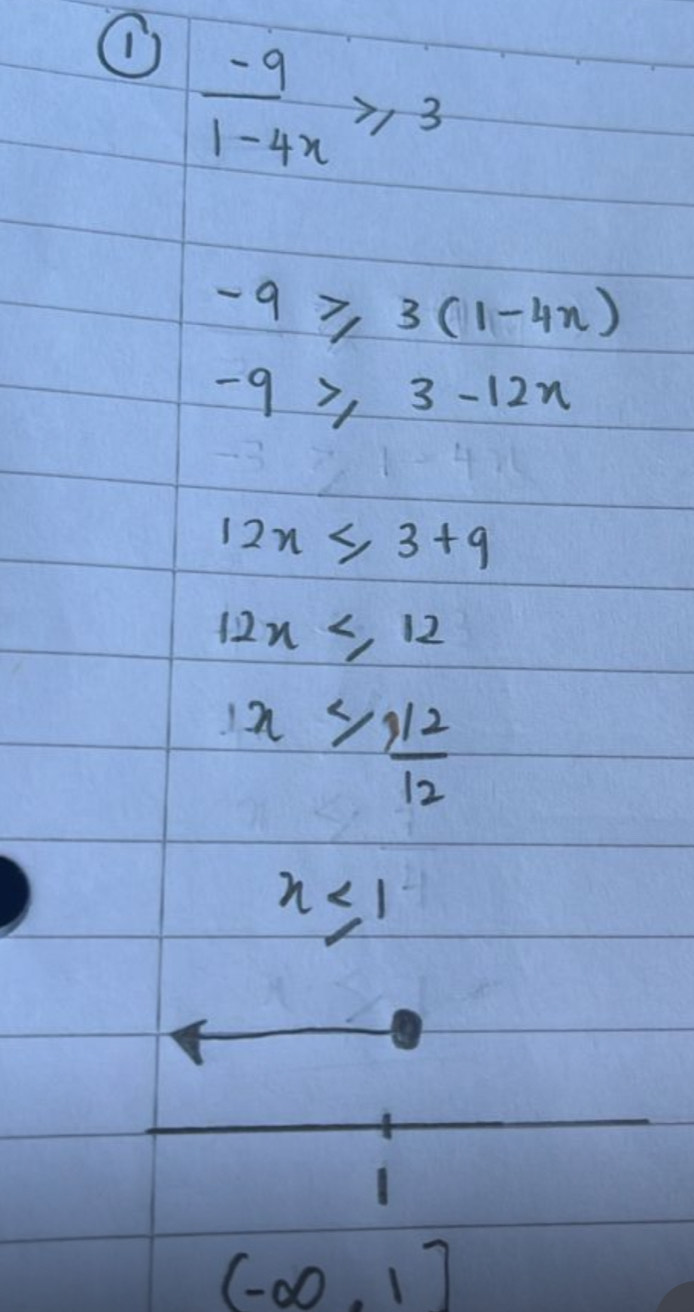 ① -9/(1-4x) ⩾ 3
-9 ⩾ 3(1-4x)
-9 ⩾ 3-12x
-3 ⩾ 1-4x
12x ⩽ 3+9
12x ⩽ 12
1x ⩽ 12/12
x ⩽ 1
1
(-∞, 1]